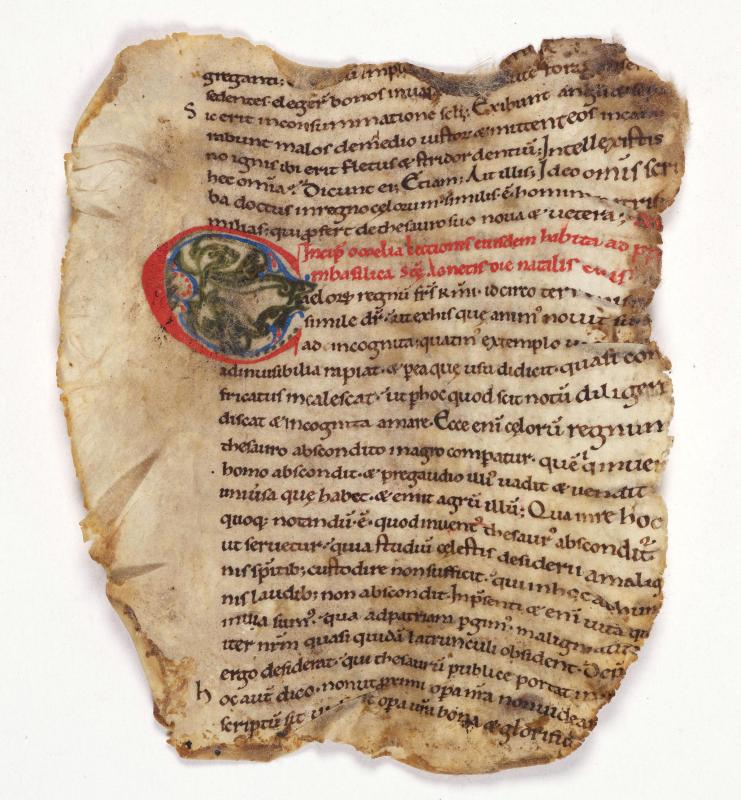 greganti;
sedentes elegert bonos inuas
Sic erit inconsummatione scli; Exibunt angli
rabunt malos demedio iustoꝝ & mittent eos in cam
no ignis ibi erit fletus & stridor dentiū; Intellexistis
hec omīa; Dicunt ei; Etiam; Ait illis; Ideo omīs scri
ba doctus in regno cęlorum similis ē homini patris
milias; qui pfert de thesauro suo noua & uetera;
Incip omelia lectionis eiusdem habita ad pp
in basilica Scę Agnetis die natalis eius
Cęloꝝ regnū frs kmi idcirco ter
simile dr ut ex his que anim' nouit
ad incognita quatin' exemplo
ad inuisibilia rapiat & pea que usu didicit quasi con
fricatus incalescat ut phoc quod scit notū diligere
discat & incognita amare. Ecce eni cęlorū regnum
thesauro abscondito in agro compatur. quē qui inuen
homo abscondit & pregaudio illi' uadit & uendit
uniuersa quę habet & emit agrū illū; Qua in re hoc
quoq; notandū ē quod inuent' thesaur' absconditr
ut seruetur quia studiū cęlestis desiderii amalig
nis spitib; custodire non sufficit qui in hoc abhum
nis laudib; non abscondit. In psenti & eni uita qu
in uia sum' qua ad patriam pgim' maligni
iter nrm quasi quidā latrunculi obsident Dep
ergo desiderat qui thesaurū publice portat in
Hoc aut dico non ut pximi opa nra non uidean
scriptū sit opa ura bona & glorific